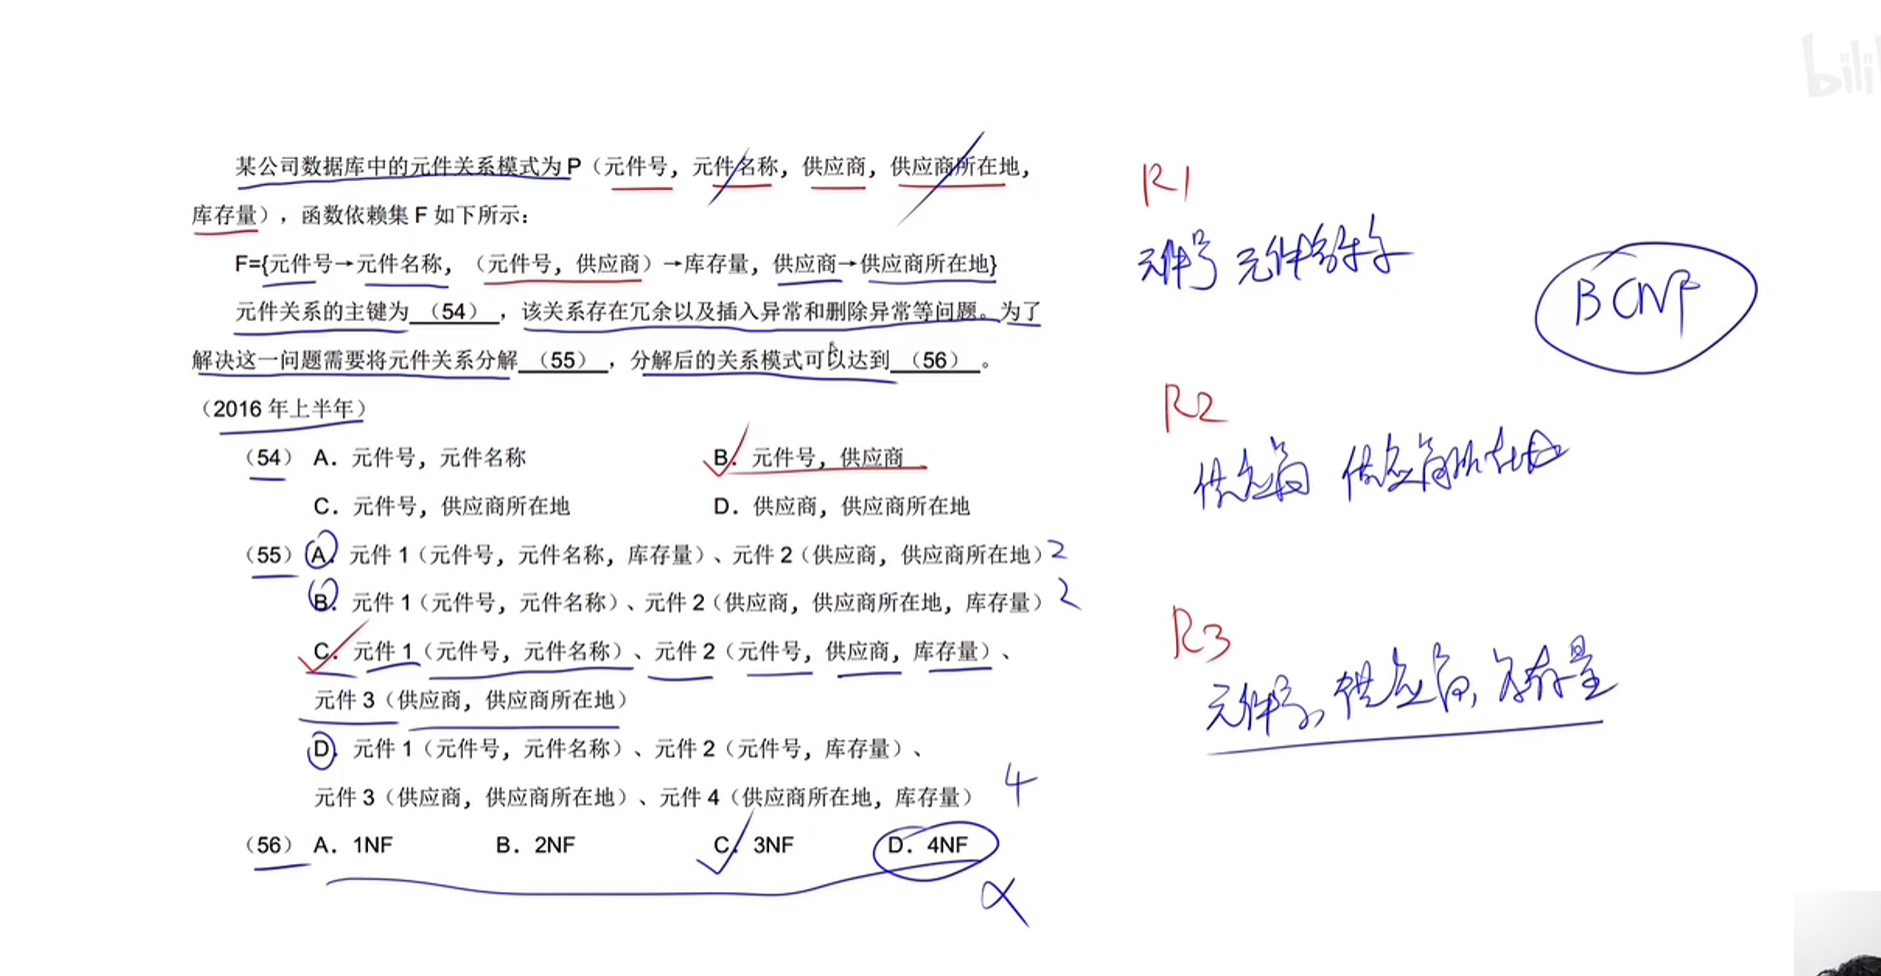 某公司数据库中的元件关系模式为 P（元件号，元件名称，供应商，供应商所在地，
库存量），函数依赖集 F 如下所示：
F={元件号→元件名称，（元件号，供应商）→库存量，供应商→供应商所在地}
元件关系的主键为（54），该关系存在冗余以及插入异常和删除异常等问题。为了
解决这一问题需要将元件关系分解（55），分解后的关系模式可以达到（56）。
（2016 年上半年）
（54）A．元件号，元件名称 B．元件号，供应商
C．元件号，供应商所在地 D．供应商，供应商所在地
（55）A．元件 1（元件号，元件名称，库存量）、元件 2（供应商，供应商所在地） 2
B．元件 1（元件号，元件名称）、元件 2（供应商，供应商所在地，库存量） 2
C．元件 1（元件号，元件名称）、元件 2（元件号，供应商，库存量）、
元件 3（供应商，供应商所在地）
D．元件 1（元件号，元件名称）、元件 2（元件号，库存量）、
元件 3（供应商，供应商所在地）、元件 4（供应商所在地，库存量） 4
（56）A．1NF B．2NF C．3NF D．4NF
R1
元件号 元件
BCNF
R2
供应商 供应商所在地
R3
元件号，供应商，库存量
bili